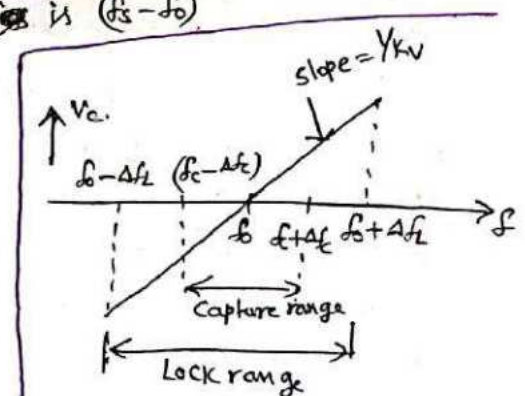 is (fs - fo)
slope = 1/Kv
Vc.
fo - ΔfL (fc - Δfc)
fo fc + Δfc fo + ΔfL f
Capture range
Lock range